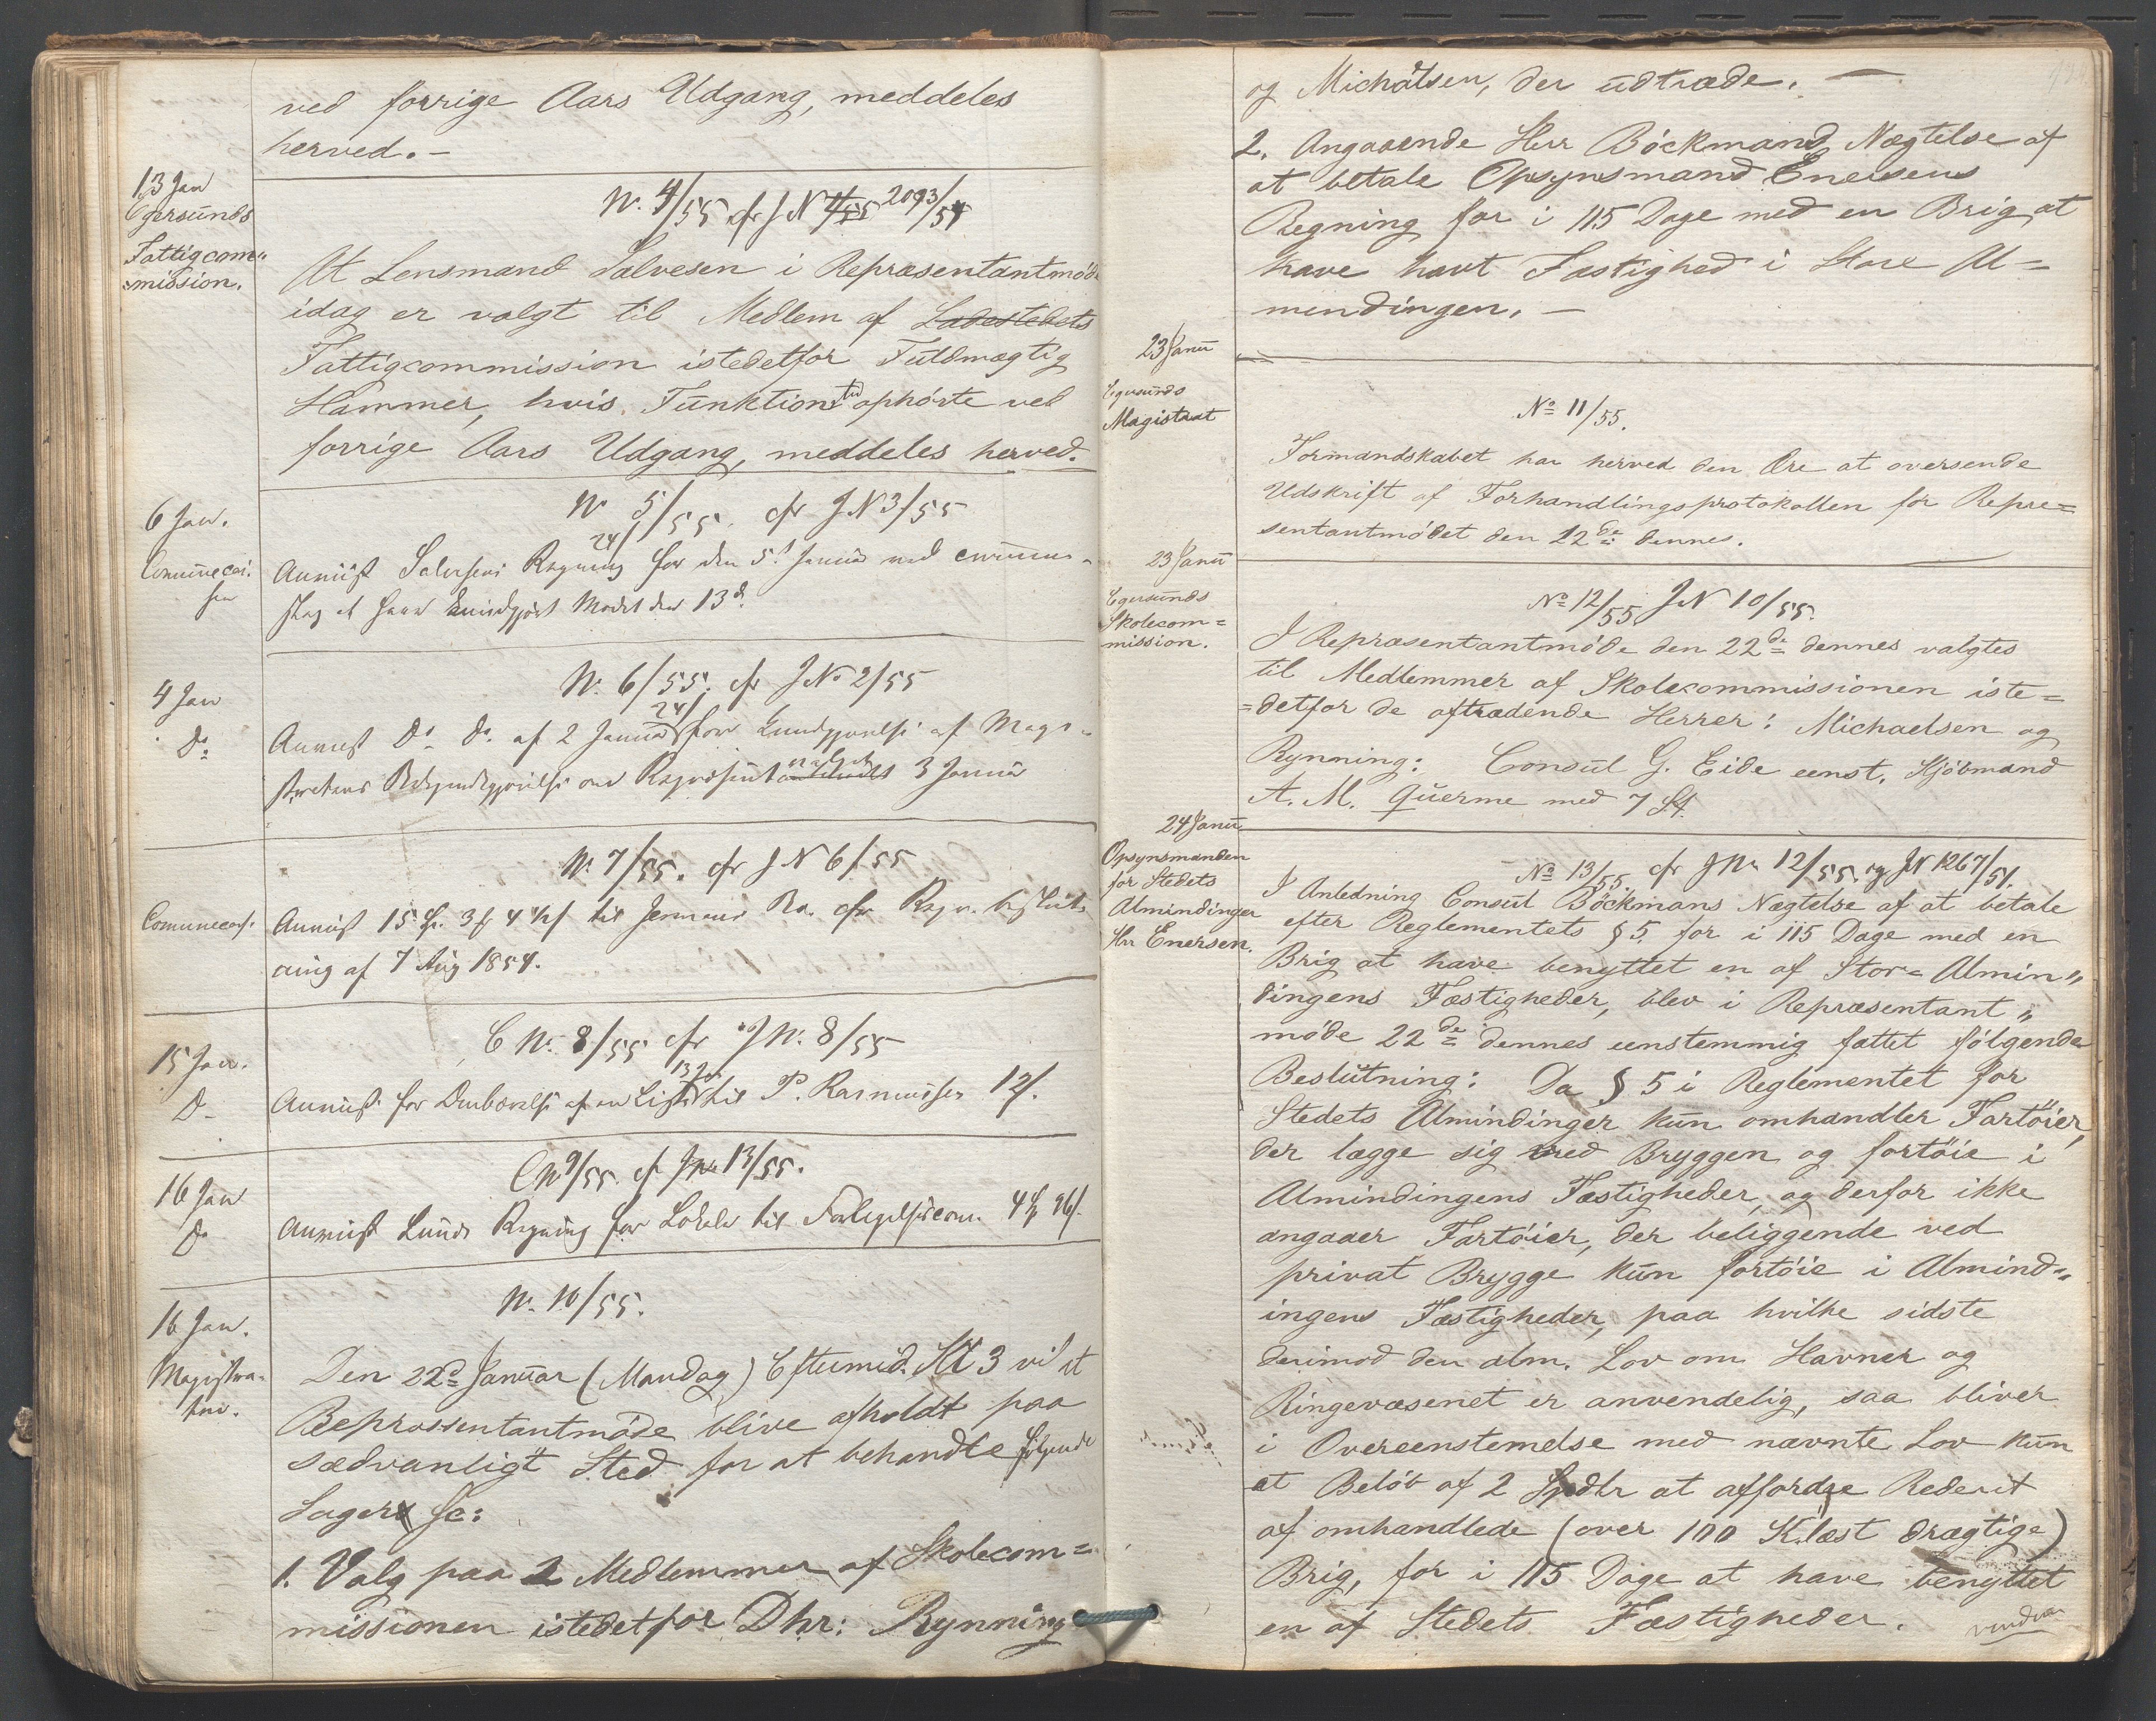 ved forrige Aars Udgang, meddeles
herved. –
13 Jan
Egersunds
Fattigcom„
mission.
N. 4/55 cfr J N 2093/54
At Lensmand Salvesen i Repræsentantmöde
idag er valgt til Medlem af Ladestedets
Fattigcommission istedetfor Fuldmægtig
Hammer, hvis Funktionstid ophörte ved
forrige Aars Udgang, meddeles herved.
6 Jan.
N. 5/55. cfr J N 3/55
Anvist Salvesens Regning for den 5t Januar
den 13d.
4 Jan
Do
N. 6/55. cfr J No 2/55
Anvist Do Do. af 2 Januar for Kundgjørelse af Magi-
stratens Bekjendtgjørelse om 3 Januar
N. 7/55. cfr J N 6/55
Communecas.
Anvist 15 3 4 til
ning af 7 Aug 1854.
15 Jan.
Do
C N. 8/55 cfr J N. 8/55
Anvist for Ombærelse af en Liste til P. Rasmussen 12s.
16 Jan
Do
C N 9/55. cf J No 13/55.
Anvist Lunds Regning for Lokale til 4 96s.
16 Jan.
Magistra-
ten.
N. 10/55.
Den 22d Januar (Mandag) Eftermid. Kl 3 vil et
Repræsentantmöde blive afholdt paa
sædvanligt Sted for at behandle følgende
Sager sc:
1. Valg paa 2 Medlemmer af Skolecom=
missionen istedetfor Dhr: Rynning
og Michalsen, der udtræde. –
2. Angaaende Herr Böckmand Nægtelse af
at betale Opsynsmand Enersens
Regning for i 115 Dage med en Brig at
have havt Fæstighed i Store Al=
mendingen. –
23 Janu
Egersunds
Magistrat
No 11/55.
Formandskabet har herved den Ære at oversende
Udskrift af Forhandlingsprotokollen for Repre=
sentantmödet den 22de dennes.
23 Janu
Egersunds
Skolecom=
mission.
No 12/55. J N 10/55.
I Repræsentantmöde den 22de dennes valgtes
til Medlemmer af Skolecommissionen iste=
=detfor de aftrædende Herrer: Michaelsen og
Rynning: Consul G. Eide eenst. Kjöbmand
A. M. Querme med 7 St.
24 Janu.
Opsynsmanden
for Stedets
Almindinger
Hrr Enersen.
No 13/55. cfr J No 12/55. og J N 1267/51.
I Anledning Consul Böckmans Nægtelse af at betale
efter Reglementets § 5. for i 115 Dage med en
Brig at have benyttet en af Stor= Almin„
dingens Fæstigheder, blev i Repræsentant„
möde 22de dennes eenstemmig fattet fölgende
Beslutning: Da § 5 i Reglementet for
Stedets Almindinger kun omhandler Fartöier,
der lægge sig ved Bryggen og fortöie i
Almindingens Fæstigheder, og derfor ikke
angaaer Fartöier, der beliggende ved
privat Brygge kun fortöie i Almind=
ingens Fæstigheder, paa hvilke sidste
derimod den alm. Lov om Havner og
Ringevæsenet er anvendelig, saa bliver
i Overeenstemelse med nævnte Lov kun
at Belöb af 2 Spdlr at affordre Rederiet
af omhandlede (over 100 K.læst drægtige)
Brig, for i 115 Dage at have benyttet
en af Stedets Fæstigheder.